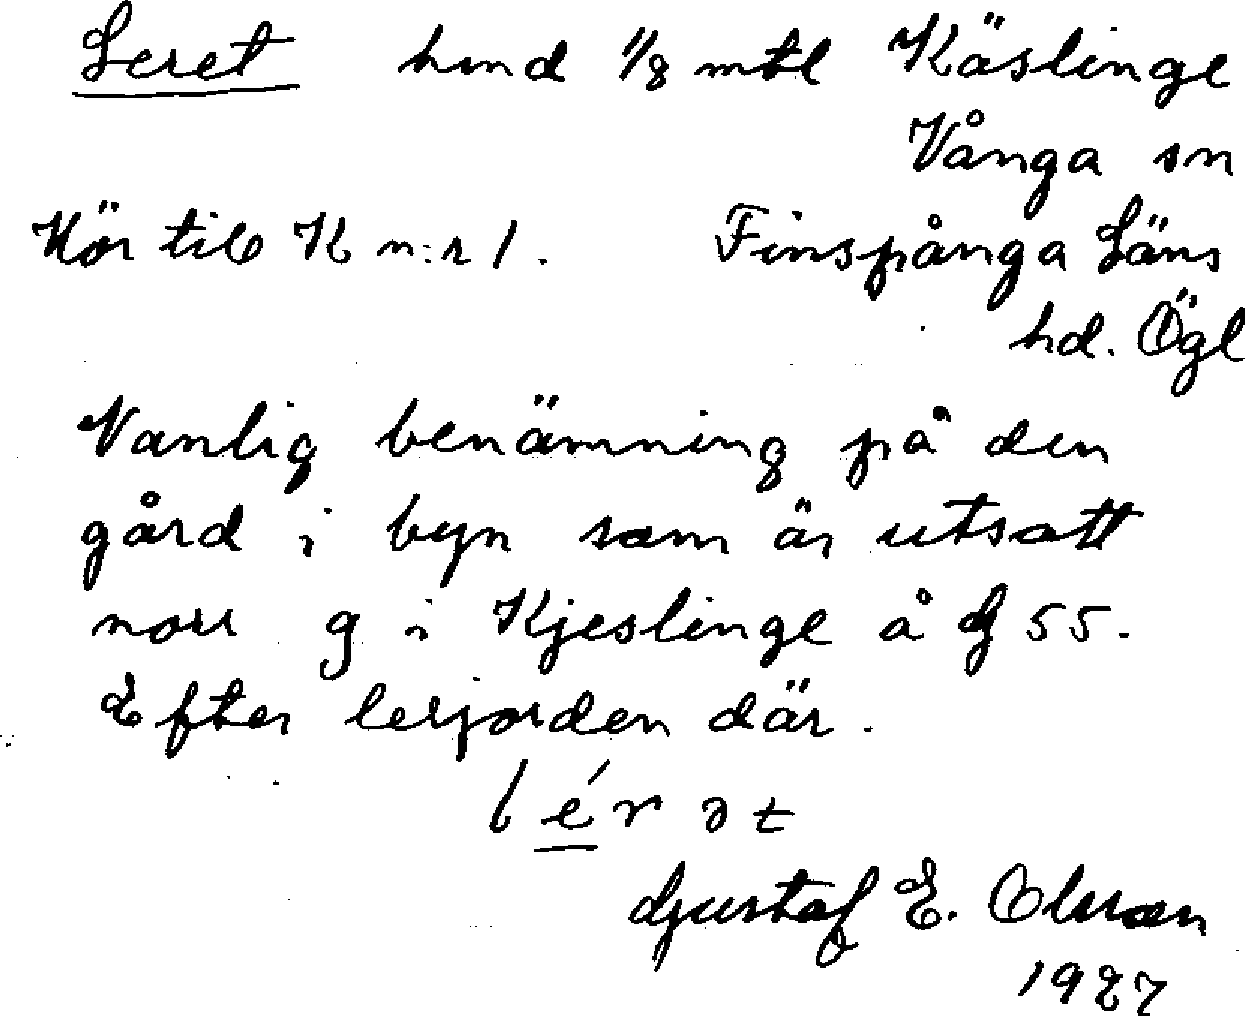 Leret hmd 1/8 mtl Käslinge
Vånga sn
Hör till K n:r 1. Finspånga Läns
hd. Ögl
Vanlig benämning på den
gård i byn som är utsatt
norr g i Kjeslinge å G 55.
Efter lerjorden där.
lérət
Gustaf E. Olsson
1927